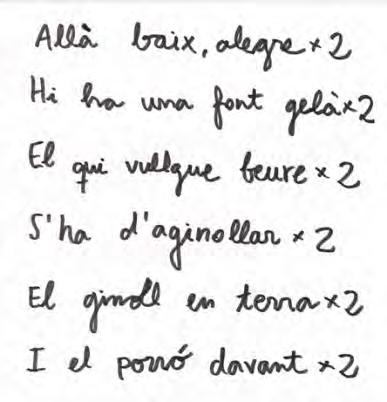 Allà baix, alegre x 2
Hi ha una font gelà x 2
El qui vullgue beure x 2
S'ha d'aginollar x 2
El ginoll en terra x 2
I el porró davant x 2